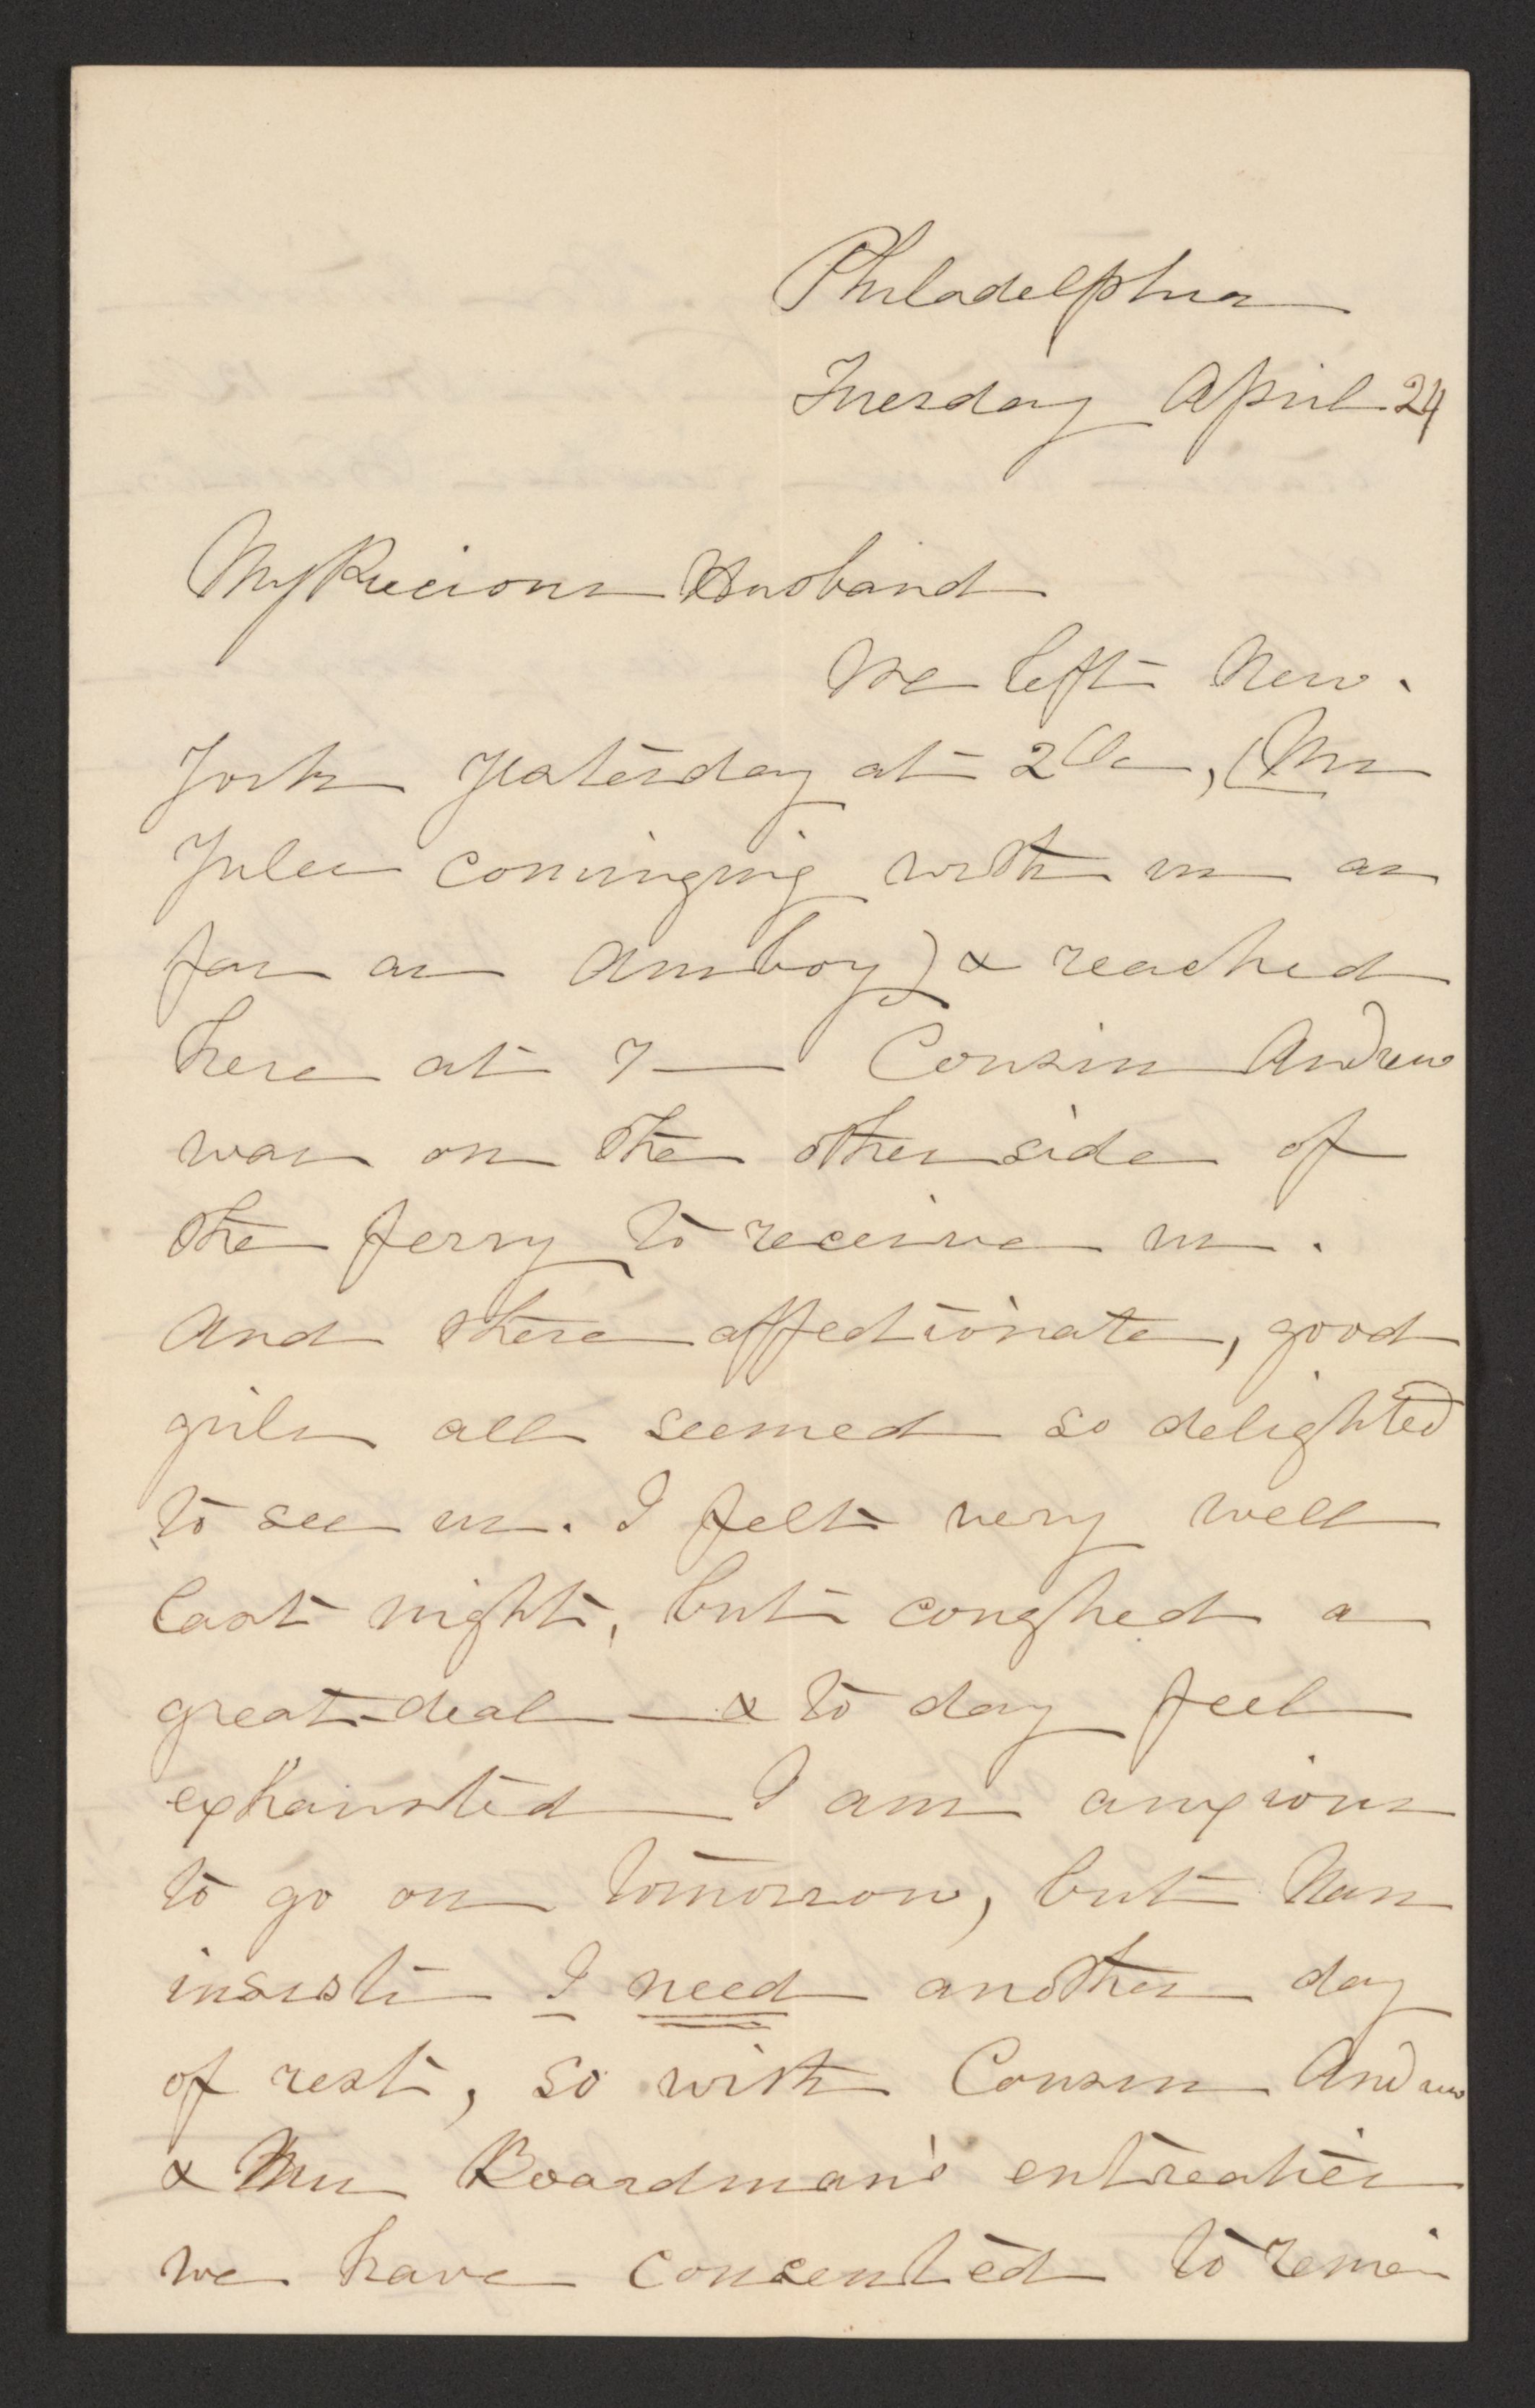 Philadelphia
Tuesday April 24
My Precious Husband
We left New.
York yesterday at 2 Oc, (Mr
Jules cominging with us as
far as Amboy) & reached
here at 7 — Cousin Andrew
was on the other side of
the ferry to receive us.
And these affectionate, good
girls all seemed so delighted
to see us. I felt very well
last night, but coughed a
great deal — & to day feel
exhausted — I am anxious
to go on tomorrow, but Nan
insists I need another day
of rest, so with Cousin Andrew
& Mrs Boardman's entreaties
we have consented to remain